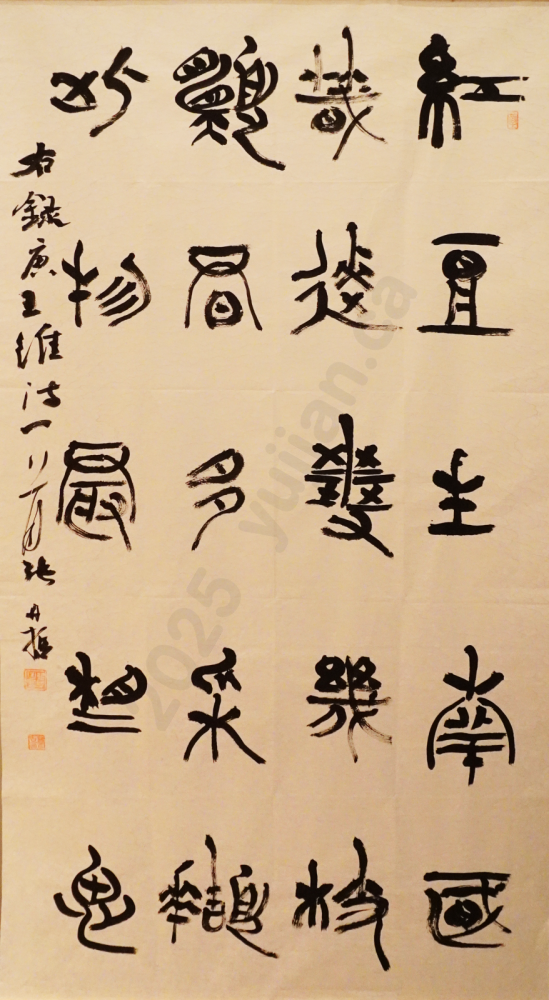 紅豆生南國
春來發幾枝
願君多采擷
此物最相思
右錄唐王維詩一首 张丹
2025 yujian.ca